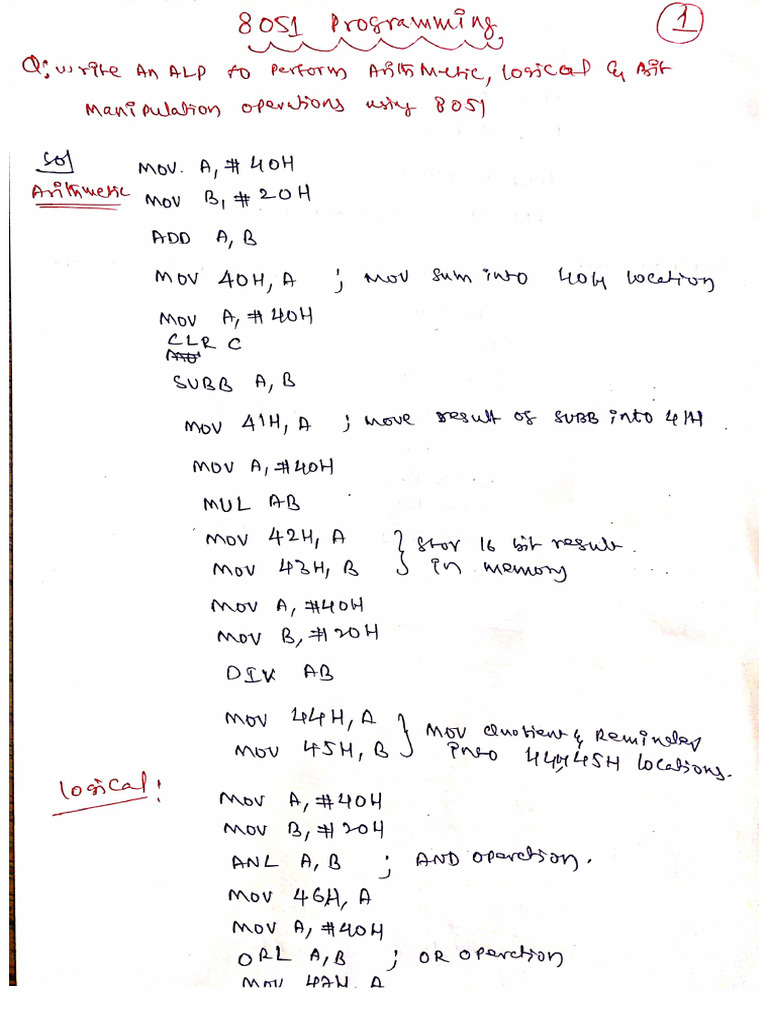 8051 Programming
1
Q: Write An ALP to Perform Arithmetic, Logical & Bit
Manipulation operations using 8051
Sol
MOV. A, #40H
Arithmetic
MOV B, #20H
ADD A, B
MOV 40H, A ; Mov sum into 40H location
MOV A, #40H
CLR C
SUBB A, B
MOV 41H, A ; Move result of SUBB into 41H.
MOV A, #40H
MUL AB
MOV 42H, A } Stor 16 bit result.
MOV 43H, B in memory
MOV A, #40H
MOV B, #20H
DIV AB
MOV 44H, A } Mov Quotient & Reminder
MOV 45H, B into 44H, 45H locations.
Logical:
MOV A, #40H
MOV B, #20H
ANL A, B ; AND operation.
MOV 46H, A
MOV A, #40H
ORL A, B ; OR operation
MOV 47H, A